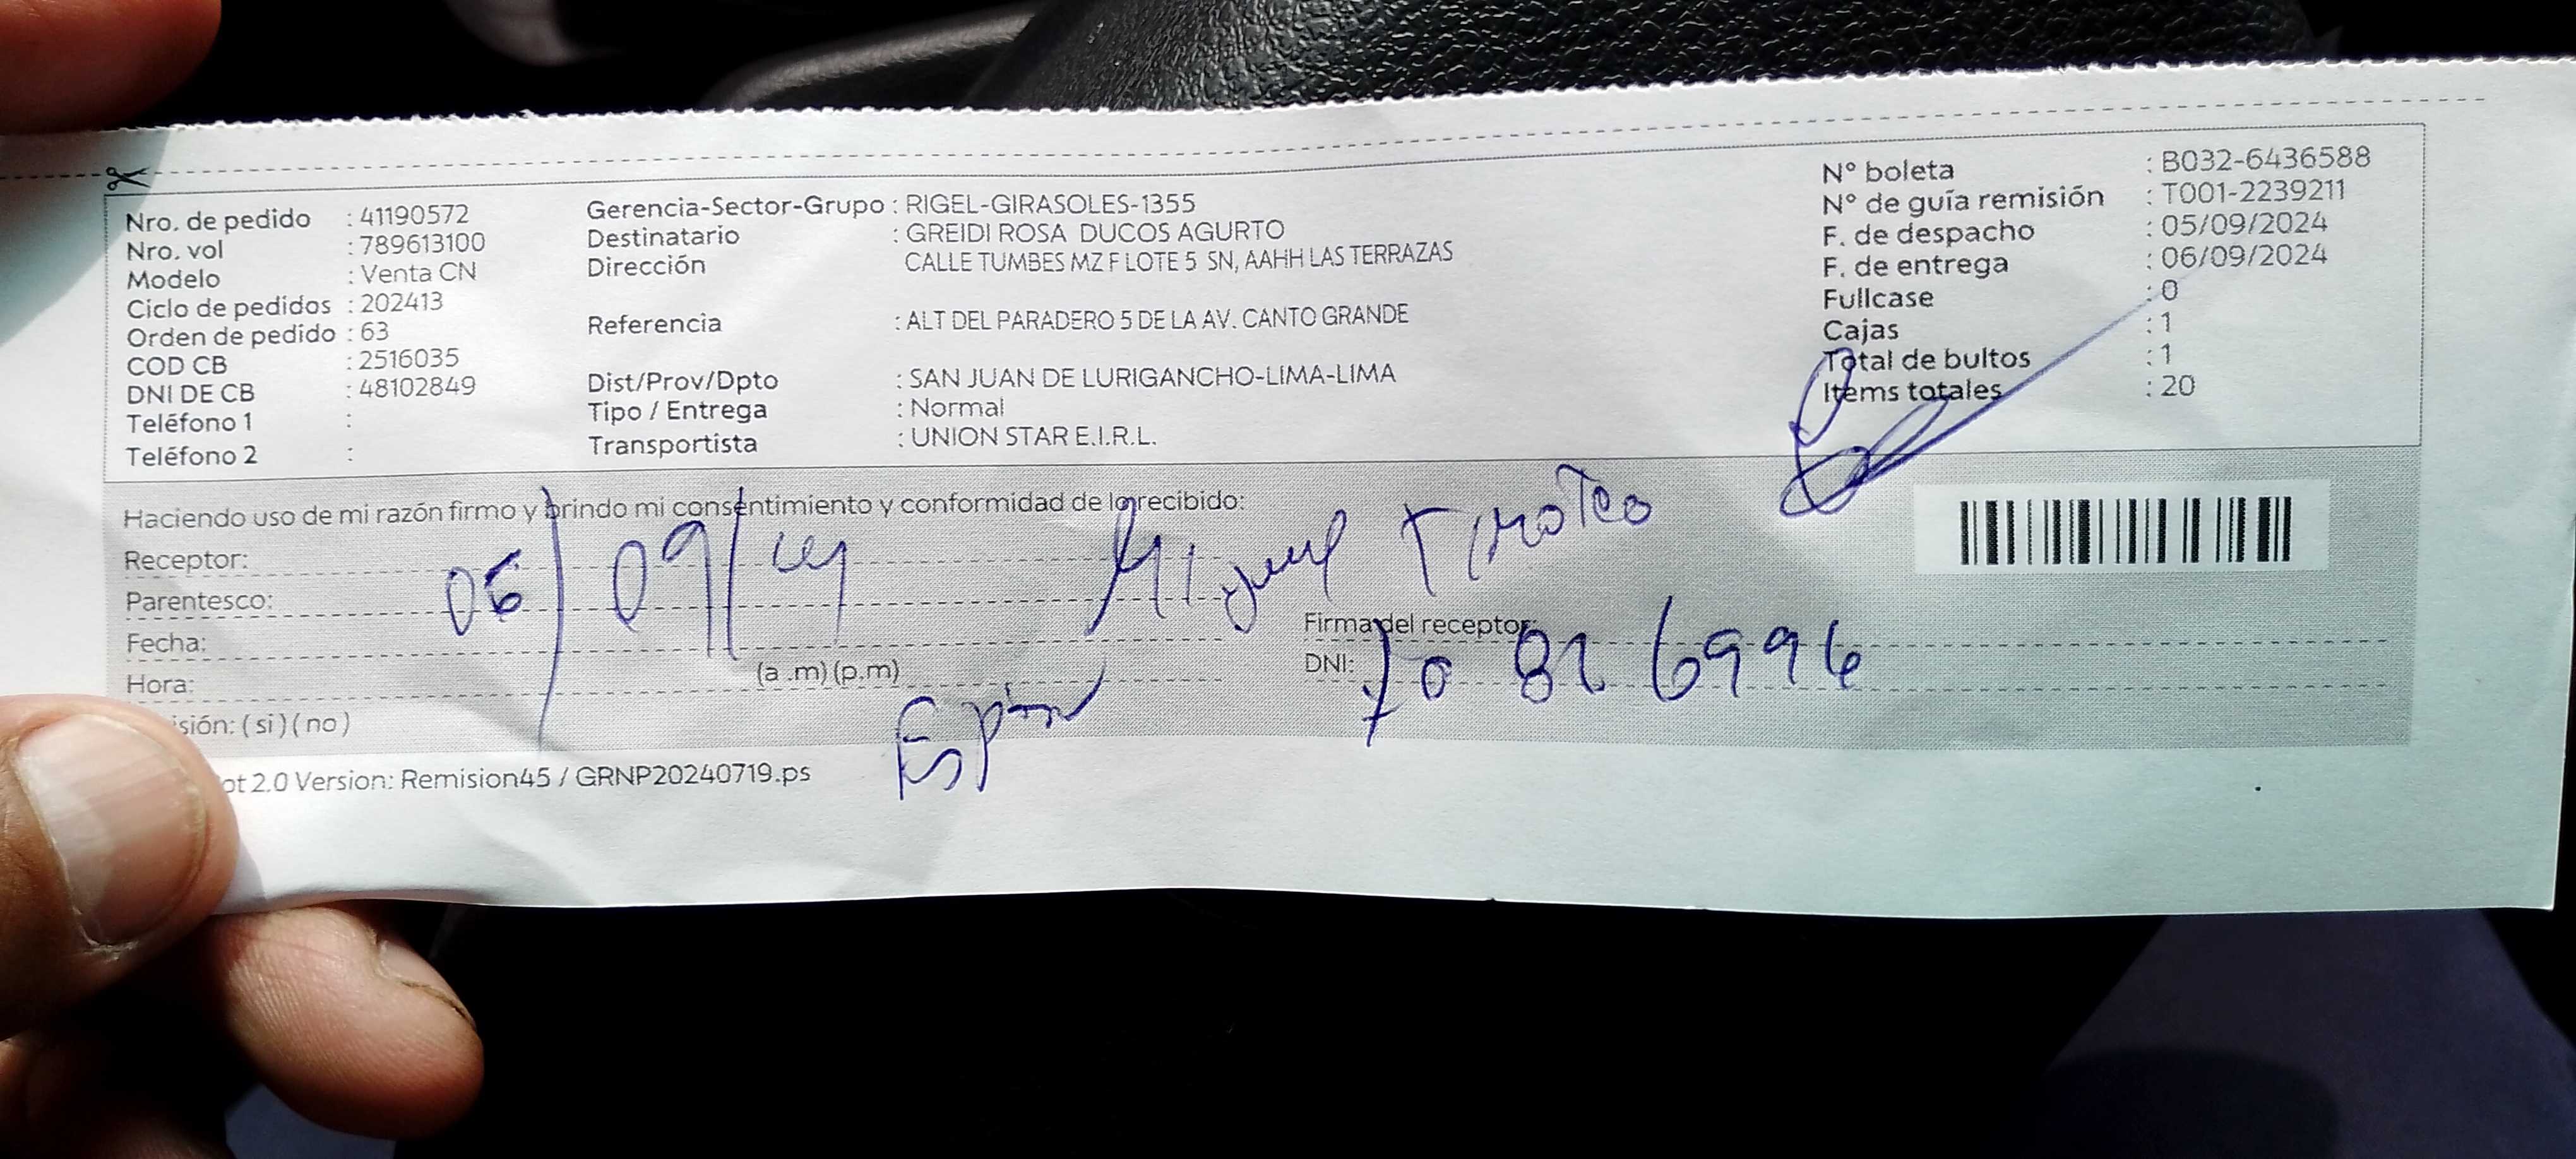 Nro. de pedido : 41190572
Nro. vol : 789613100
Modelo : Venta CN
Ciclo de pedidos : 202413
Orden de pedido : 63
COD CB : 2516035
DNI DE CB : 48102849
Teléfono 1 :
Teléfono 2 :
Gerencia-Sector-Grupo : RIGEL-GIRASOLES-1355
Destinatario : GREIDI ROSA DUCOS AGURTO
Dirección CALLE TUMBES MZ F LOTE 5 SN, AAHH LAS TERRAZAS
Referencia : ALT DEL PARADERO 5 DE LA AV. CANTO GRANDE
Dist/Prov/Dpto : SAN JUAN DE LURIGANCHO-LIMA-LIMA
Tipo / Entrega : Normal
Transportista : UNION STAR E.I.R.L.
N° boleta : B032-6436588
N° de guía remisión : T001-2239211
F. de despacho : 05/09/2024
F. de entrega : 06/09/2024
Fullcase : 0
Cajas : 1
Total de bultos : 1
Items totales : 20
Haciendo uso de mi razón firmo y brindo mi consentimiento y conformidad de lo recibido:
Receptor:
Miguel Timoteo
Parentesco:
06/09/24
Fecha:
Firma del receptor:
Hora: (a .m) (p.m)
DNI: 70826996
isión: ( si ) ( no )
ot 2.0 Version: Remision45 / GRNP20240719.ps